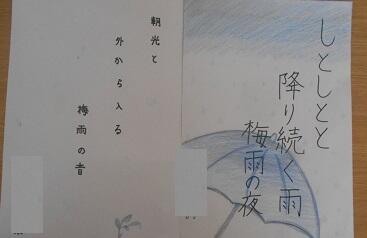 しとしとと
降り続く雨
梅雨の夜
朝光と
外から入る
梅雨の音